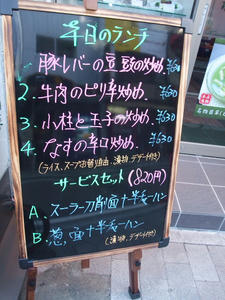 平日のランチ
1. 豚レバーの豆豉の炒め. ¥630
2. 牛肉のピリ辛炒め. ¥630
3. 小柱と玉子の炒め. ¥630
4. なすの辛口炒め. ¥630
(ライス、スープお替り自由、漬物、デザート付き)
サービスセット (820円)
A. スーラー刀削面+半チャーハン
B 葱面+半チャーハン
(漬物、デザート付き)